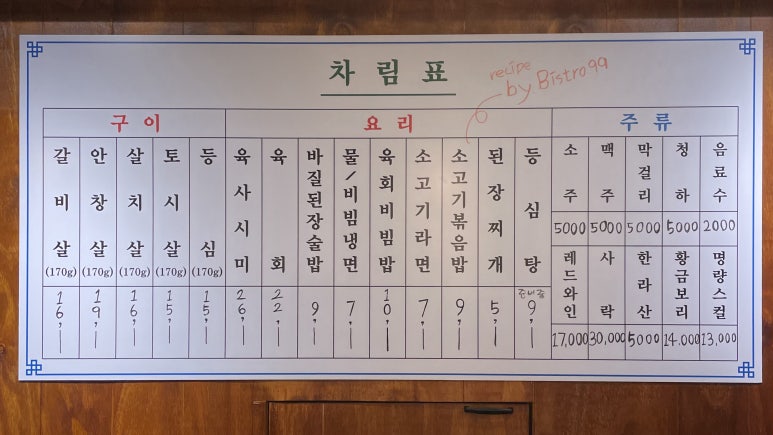 차림표
recipe
by Bistro99
구이
요리
주류
갈비살 (170g) 16,—
안창살 (170g) 19,—
살치살 (170g) 16,—
토시살 (170g) 15,—
등심 (170g) 15,—
육사시미 26,—
육회 22,—
바질된장술밥 9,—
물/비빔냉면 7,—
육회비빔밥 10,—
소고기라면 7,—
소고기볶음밥 9,—
된장찌개 5,—
등심탕 준비중 9,—
소주 5000
맥주 5000
막걸리 5000
청하 5000
음료수 2000
레드와인 17,000
사락 30,000
한라산 5000
황금보리 14.000
명량스컬 13,000